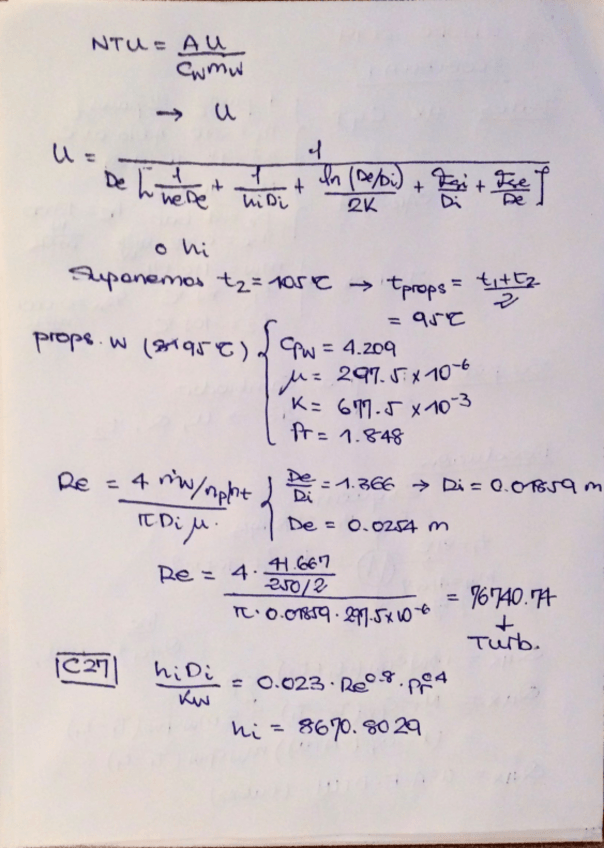 NTU = AU / CwmW
→ U
U = 1 / De [ 1/heDe + 1/hiDi + ln (De/Di)/2K + ξsi/Di + ξse/De ]
o hi
Suponemos t2 = 105ºC → tprops = t1+t2 / 2
= 95ºC
props. W (a 95ºC) { CpW = 4.209
μ = 297.5 x 10^-6
K = 677.5 x 10^-3
Pr = 1.848
Re = 4 ṁw/np/nt / π Di μ. { De/Di = 1.366 → Di = 0.01859 m
De = 0.0254 m
Re = 4 · 41.667 / 250/2 / π · 0.01859 · 297.5x10^-6 = 76740.74
↓
Turb.
C27 hiDi / Kw = 0.023 · Re^0.8 · Pr^0.4
hi = 8670.8029